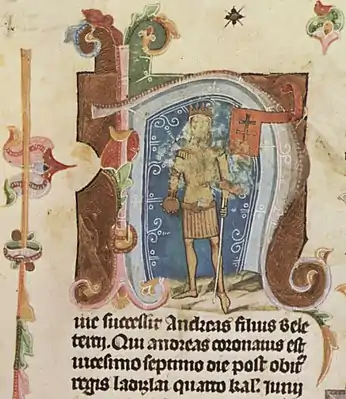 uic successit Andreas filius Bele
tertij. Qui andreas coronatus est
uicesimo septimo die post obitu
regis ladizlai quarto kal. Junij